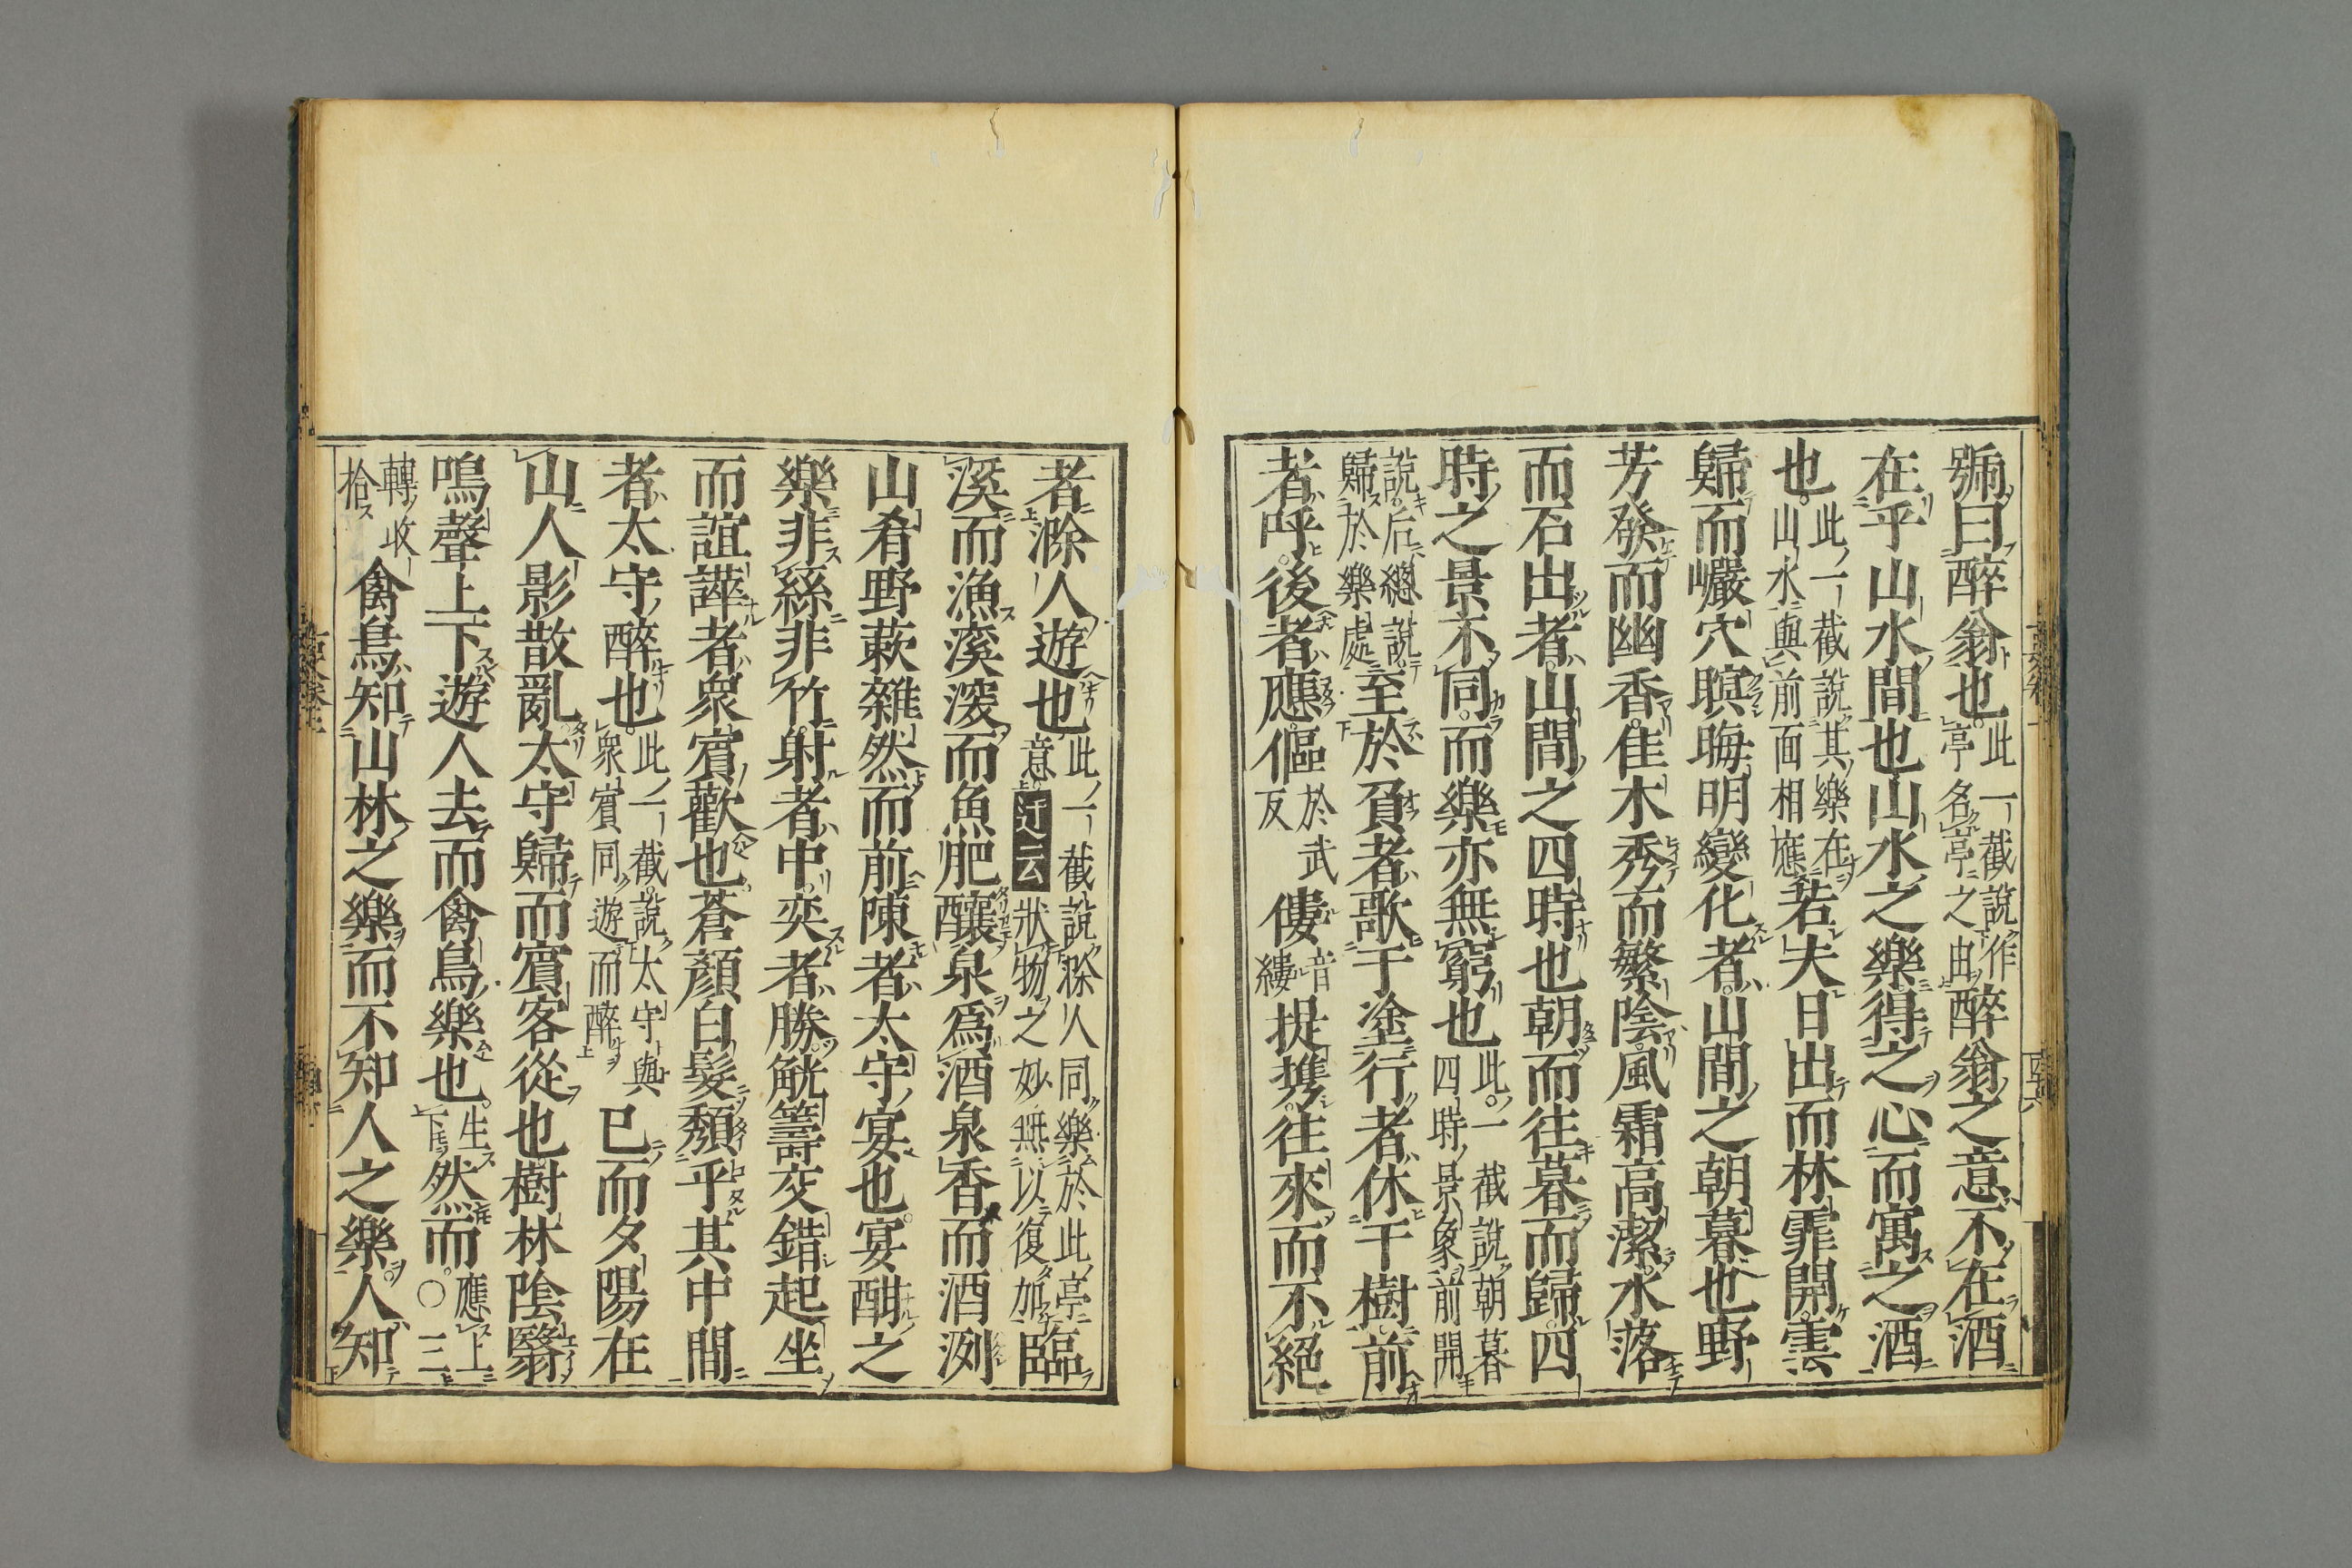 號曰醉翁也此一截說作亭名亭之由醉翁之意不在酒
在乎山水間也山水之樂得之心而寓之酒
也此一截說其樂在山水與前面相應若夫日出而林霏開雲
歸而巖穴暝晦明變化者山間之朝暮也野
芳發而幽香佳木秀而繁陰風霜高潔水落
而石出者山間之四時也朝而往暮而歸四
時之景不同而樂亦無窮也此一截說朝暮四時景象前開
說后總說歸於樂處至於負者歌于塗行者休于樹前
者呼後者應傴於武反僂音縷提攜往來而不絕
者滁人遊也此一截說滁人同樂於此亭意迂云狀物之妙無以復加臨
溪而漁溪深而魚肥釀泉爲酒泉香而酒洌
山肴野蔌雜然而前陳者太守宴也宴酣之
樂非絲非竹射者中奕者勝觥籌交錯起坐
而諠譁者衆賓歡也蒼顏白髮頹乎其中間
者太守醉也此一截說太守與衆賓同遊而醉已而夕陽在
山人影散亂太守歸而賓客從也樹林陰翳
鳴聲上下遊人去而禽鳥樂也生下然而應上〇三
轉收拾禽鳥知山林之樂而不知人之樂人知